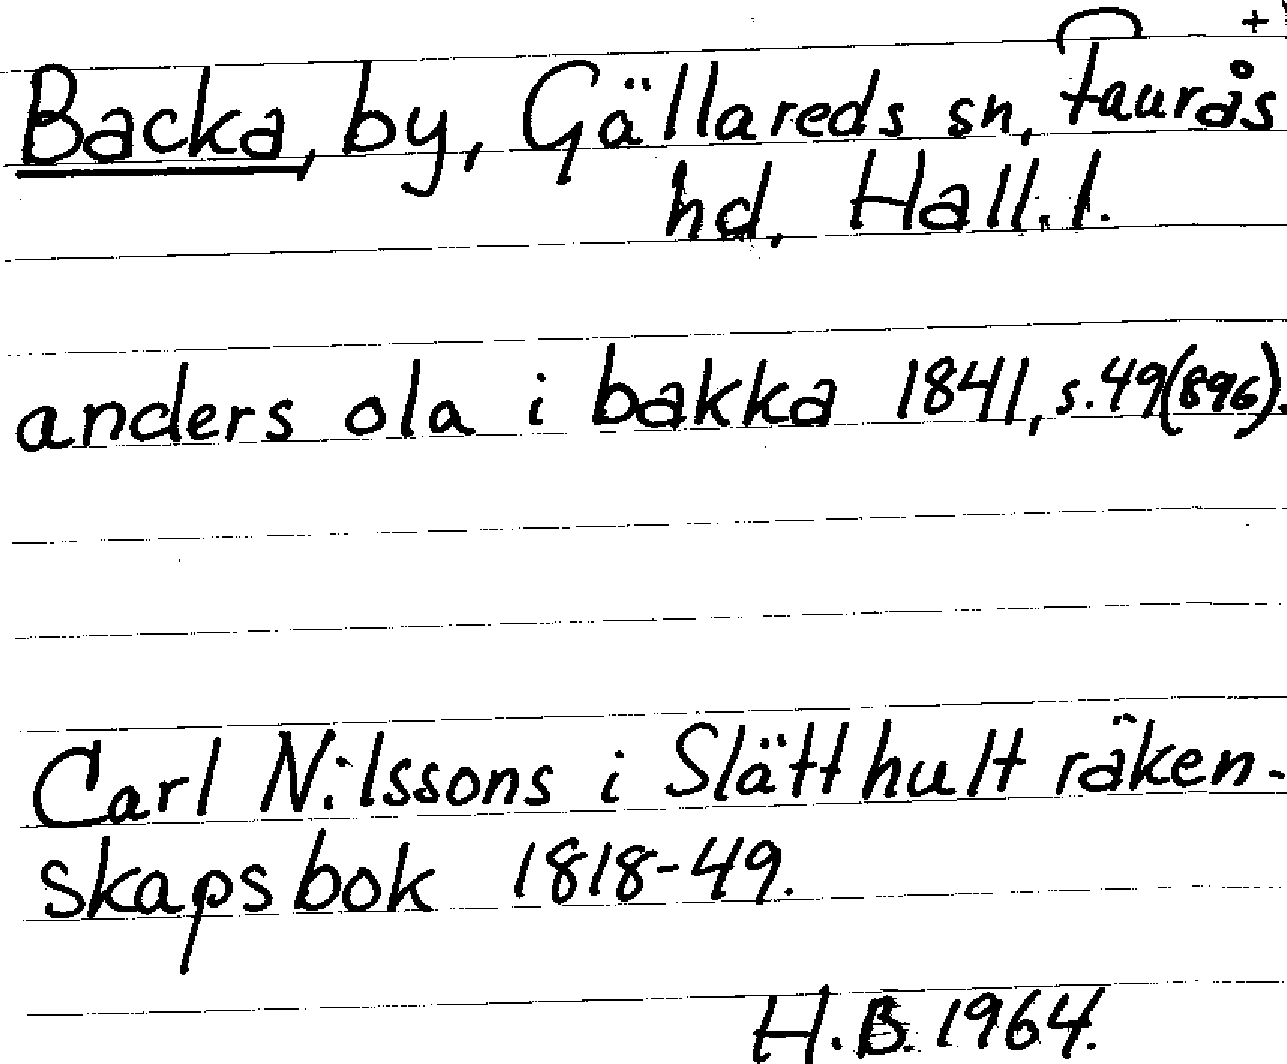 Backa, by, Gällareds sn, Faurås +
hd, Hall. l.
anders ola i bakka 1841, s. 49(896).
Carl Nilssons i Slätthult räken-
skapsbok 1818-49.
H.B. 1964.